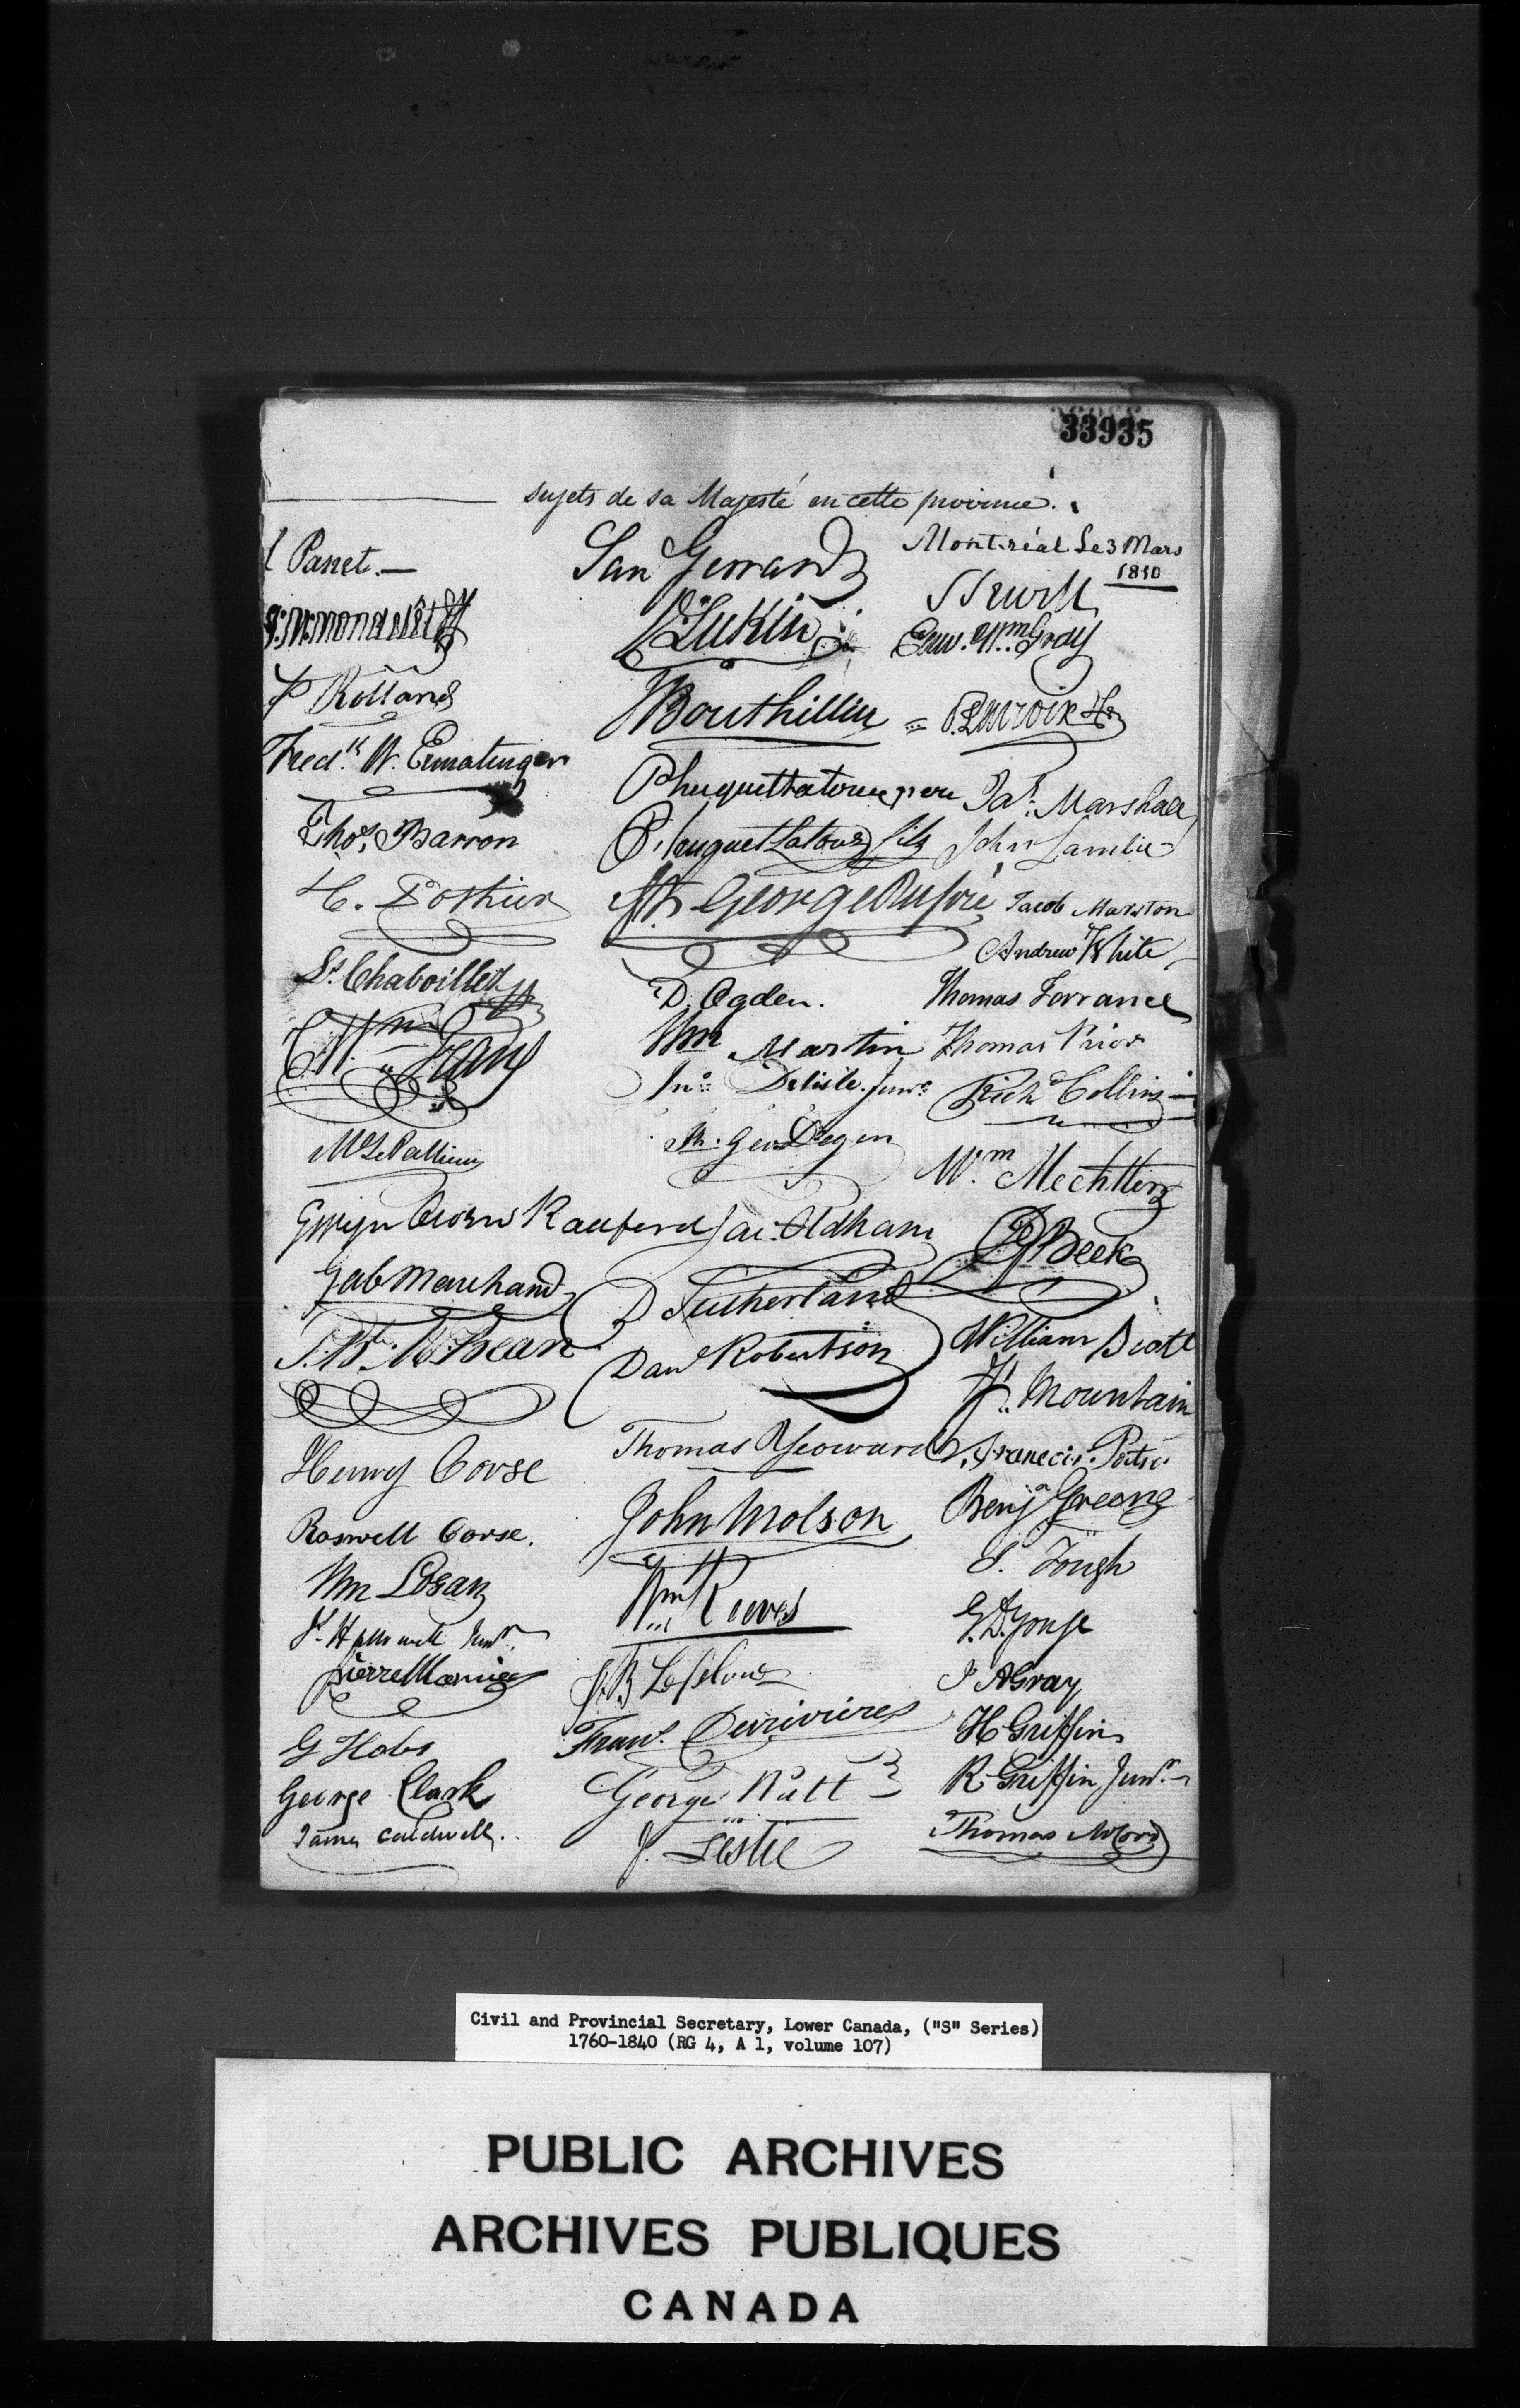 33935
sujets de sa Majesté en cette province.
Montréal Le 3 Mars
1810
Panet.
P Rolland
Fredk W. Ermatinger
Thos. Barron
St. Chaboillez
Wm
Gab Marchand
Henry Corse
Roswell Corse.
Wm Logan
Junr.
Pierre
G Hobs
George Clark
James Caldwell.
Saml Gerrard
P Lukin
Bouthillier
P huguet Latour pere
P. huguet Latour fils
George Dupré
D. Ogden.
Wm Martin
Jno. Delisle. Junr.
Geo Degen
Jac: Oldham
D Sutherland
Danl Robertson
Thomas Yeoward
John Molson
Wm Reeves
Frans. Desrivieres
George Nutt
J. Leslie
S Sewell
Edw. Wm. Gray
Jas. Marshall
John Lamlie
Jacob Marston
Andrew White
Thomas Torrance
Thomas Prior
Richd Collins
Wm. Mechtler
Beek
William
Mountain
Francis
Benja Greene
S. Tough
G. D.
J A Gray
H Griffin
R Griffin Junr.
Thomas McCord
Civil and Provincial Secretary, Lower Canada, ("S" Series)
1760-1840 (RG 4, A 1, volume 107)
PUBLIC ARCHIVES
ARCHIVES PUBLIQUES
CANADA